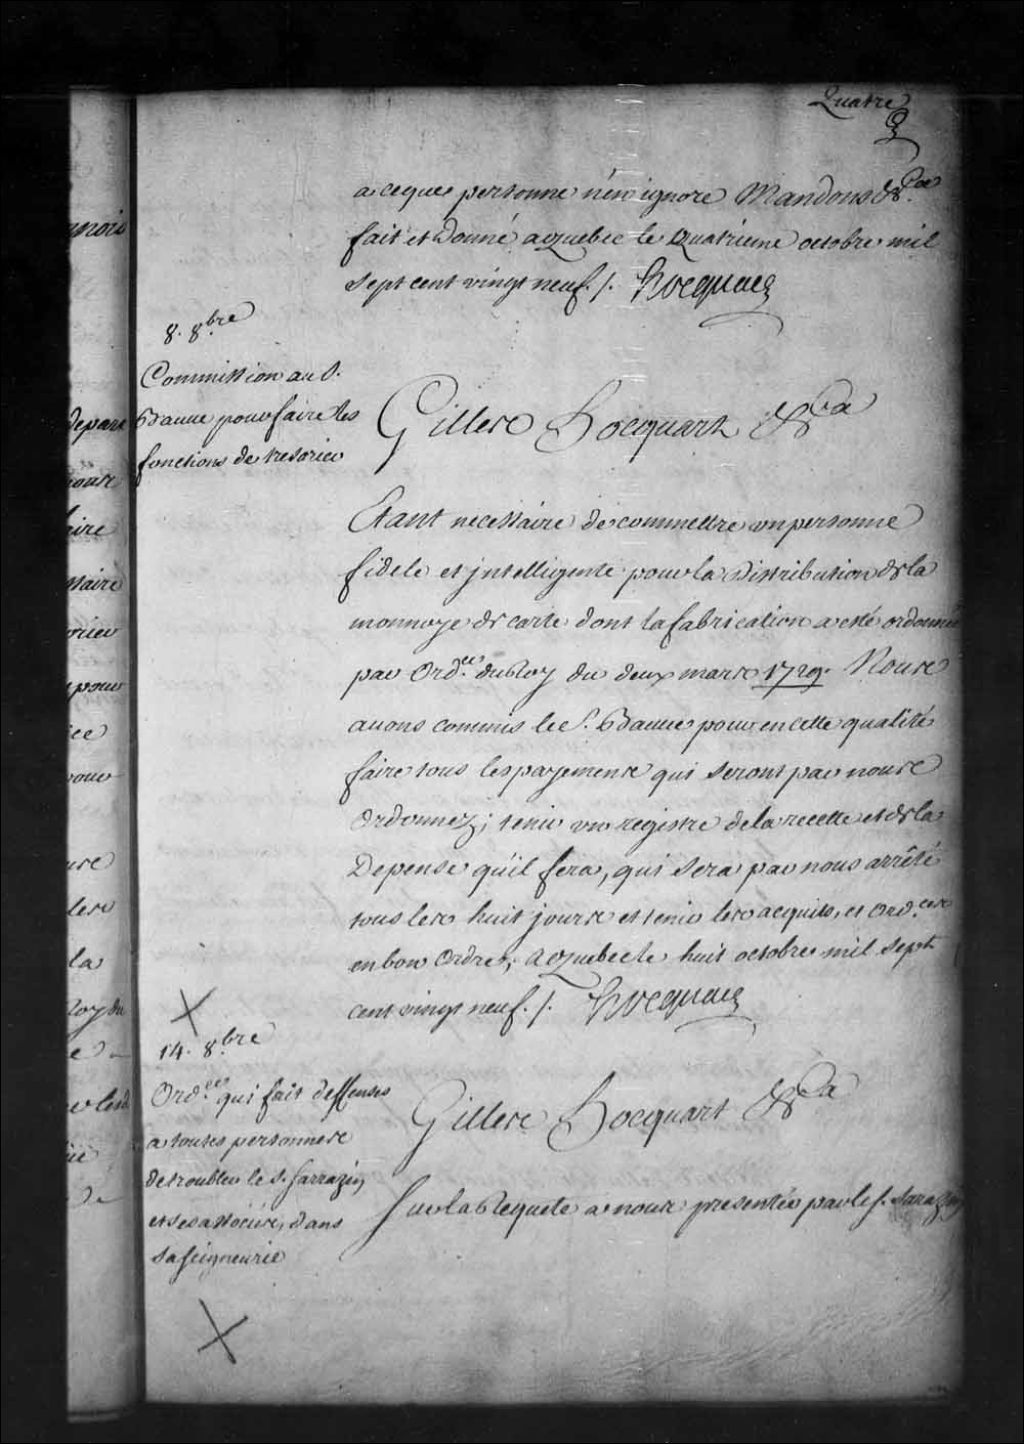 Quatre
a ceque personne n'en ignore Mandons &ca
fait et Donné a Quebec le Quatrieme octobre mil
sept cent vingt neuf ./. Hocquart
8. 8bre
Commission au S.
Daune pour faire les
fonctions de tresorier
Gilles Hocquart &ca
Etant necessaire de commettre un personne
fidele et jntelligente pour la Distribution de la
monnoye de carte dont la fabrication a esté ordonnée
par Ord.ce du Roy du deux mars 1729. Nous
auons commis le S. Daune pour en cette qualité
faire tous les payemens qui seront par nous
Ordonnez; tenir un registre de la recette et de la
Depense qu'il fera, qui sera par nous arrêté
tous les huit jours et tenir les acquits, et Ord.ces
en bon Ordre; a Quebec le huit octobre mil sept
cent vingt neuf ./. Hocquart
14. 8bre
Ord.ce qui fait deffenses
a toutes personnes
de troubler le S. Sarrazin
et ses associés, dans
sa seigneurie
Gilles Hocquart &ca
Sur la Requete a nous presentée par le S. Sarazin
mois
depart
pour
aire
ssaire
orier
pour
ce
pour
les
la
Roy du